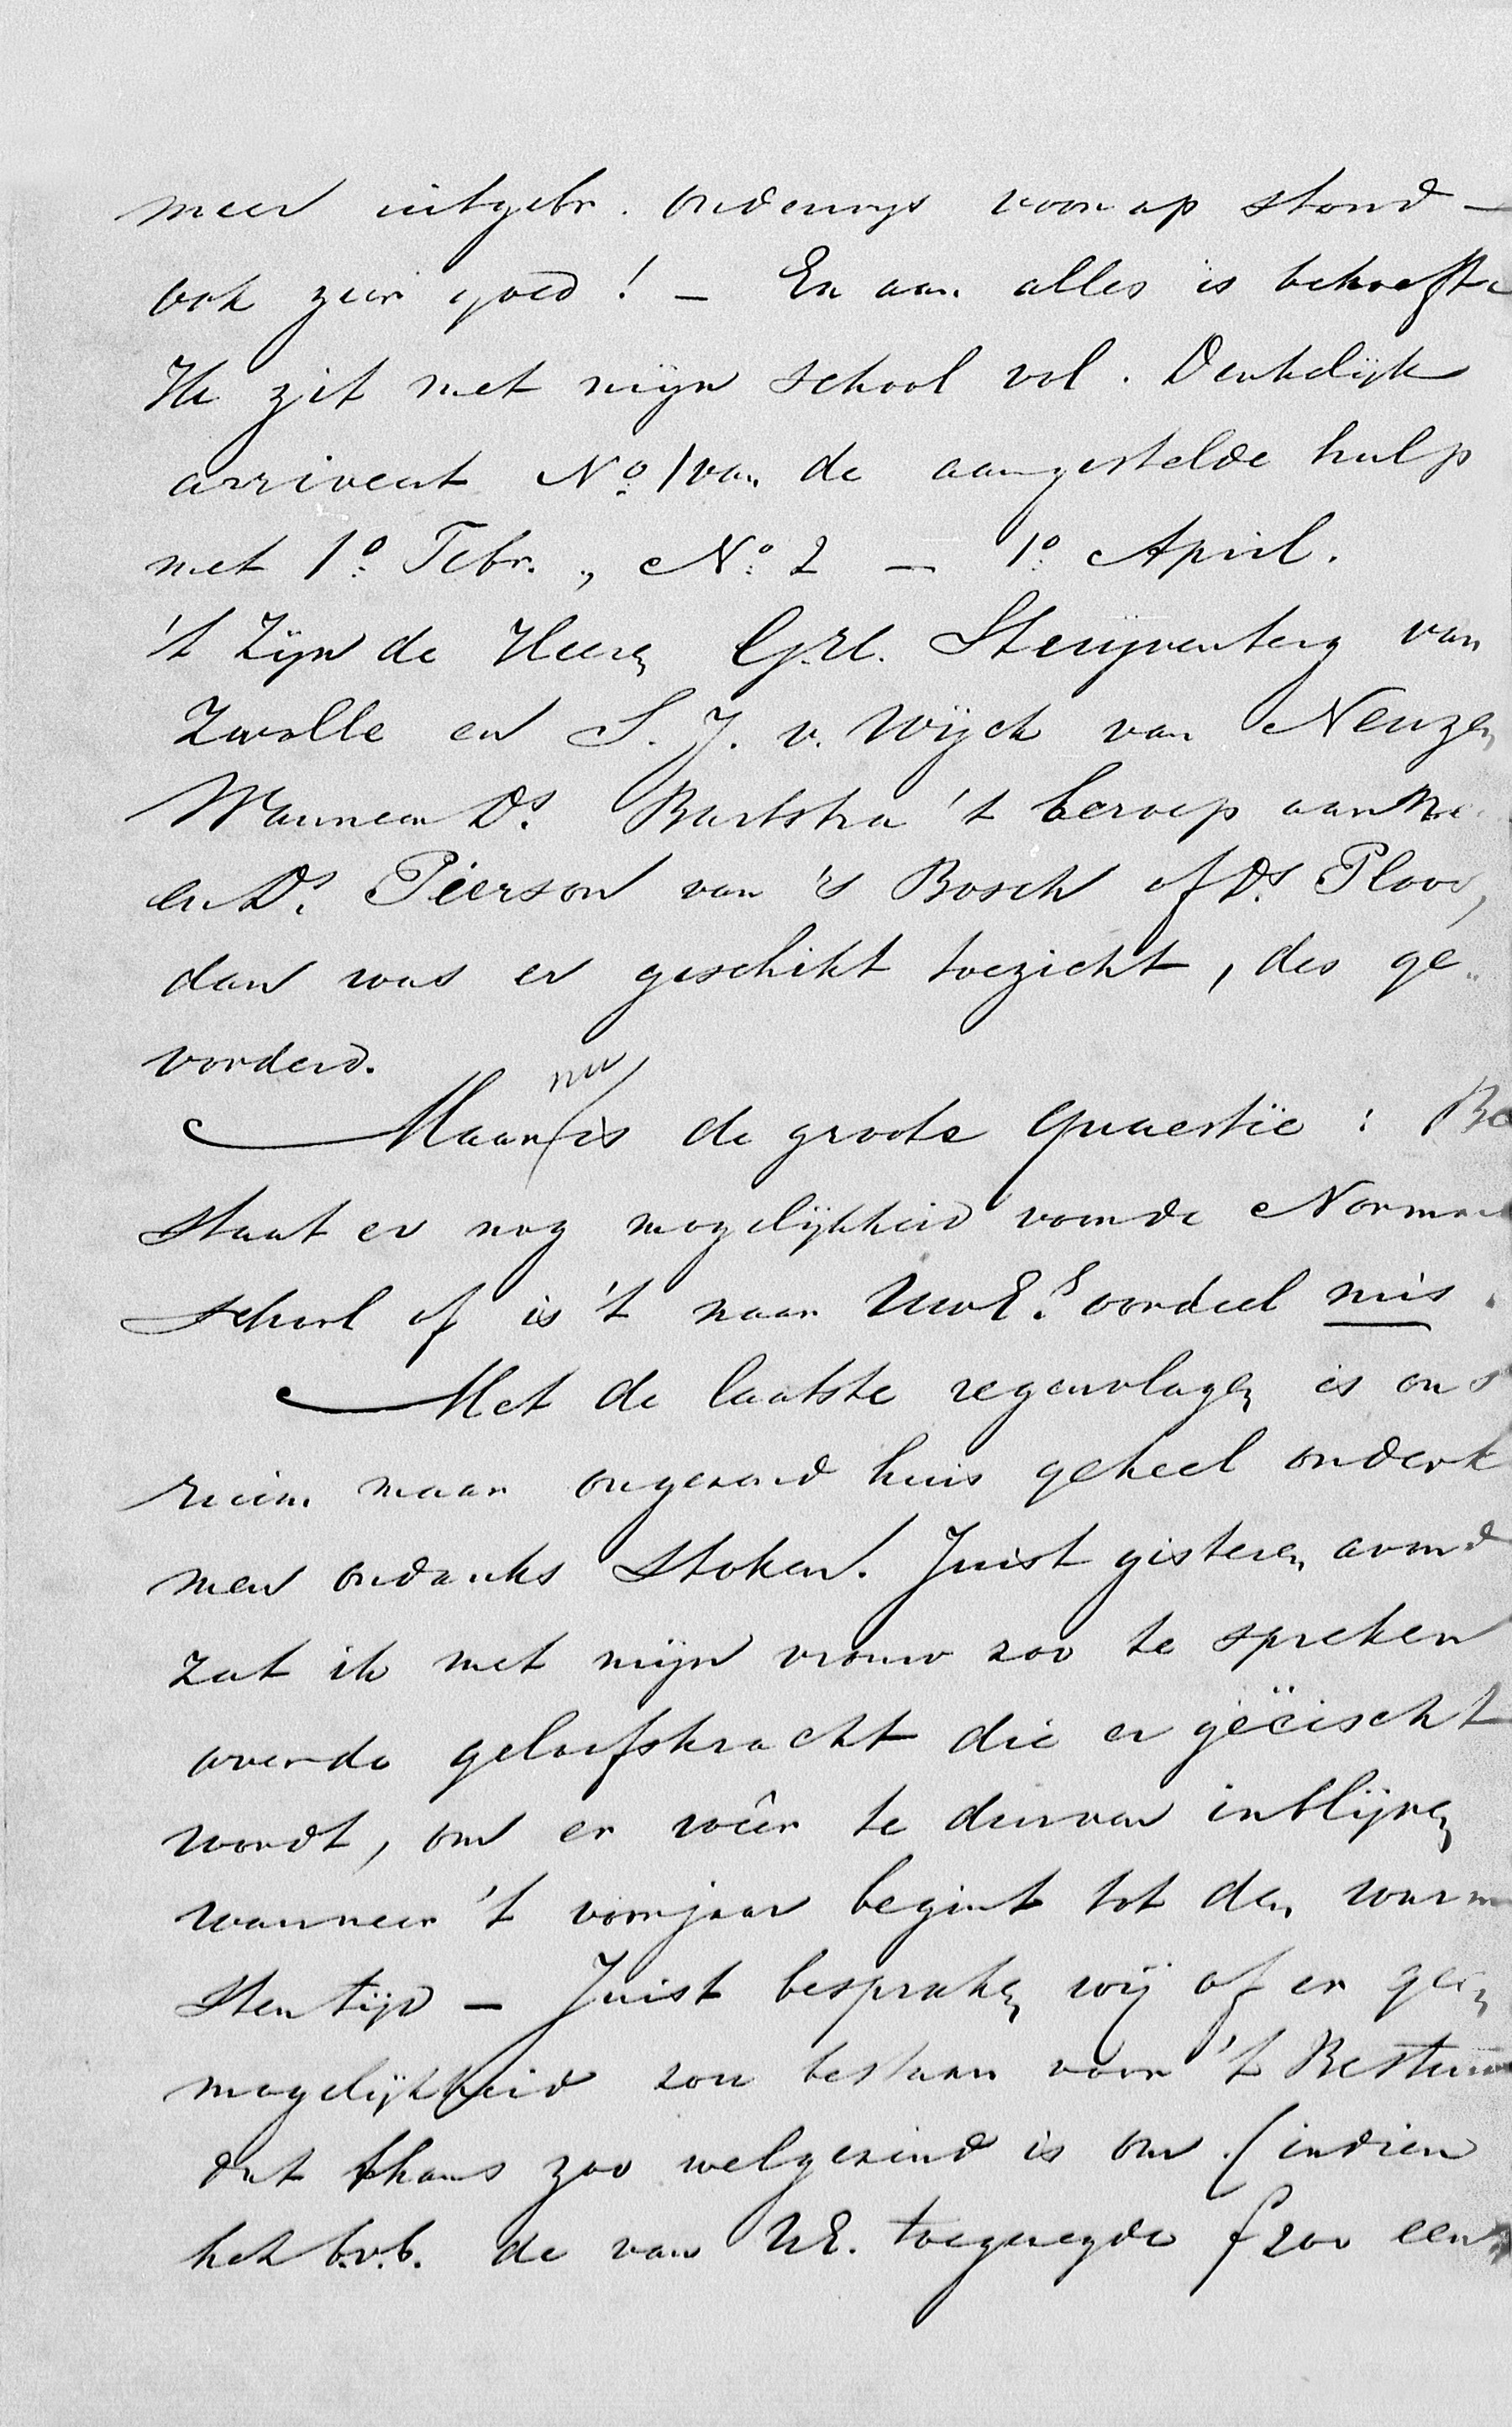 meer uitgebr. onderwijs voorop stond –
ook zeer goed! – En aan alles is behoefte
Ik zit met mijn school vol. Denkelijk
arriveert No. 1 van de aangestelde hulp
met 1o. Febr., No. 2 – 1o. April.
't Zijn de Heeren G.H. van
Zwolle en S. J. v. Wijck van Neuzen
Wanneer Ds. Bartstra 't beroep aan
en Ds. Pierson van 's Bosch of Ds. Plooy,
dan was er geschikt toezicht, des ge-
vorderd.
Maar nu is de groote quaestie: Be
staat er nog mogelijkheid voor de Normaal
school of is 't naar UwEs. oordeel mis.
Met de laatste regenvlagen is ons
ruim maar ongezond huis geheel onderk
men ondanks stoken. Juist gisteren avond
zat ik met mijn vrouw zoo te spreken
over de geloofskracht die er geëischt
wordt, om er wêer te durven inblijven
wanneer 't voorjaar begint tot den warm
sten tijd – Juist bespraken wij of er geen
mogelijkheid zou bestaan voor 't Bestuur
dat thans zoo welgezind is om (indien
het b.v.b. de van UE. toegezegde f 200 een